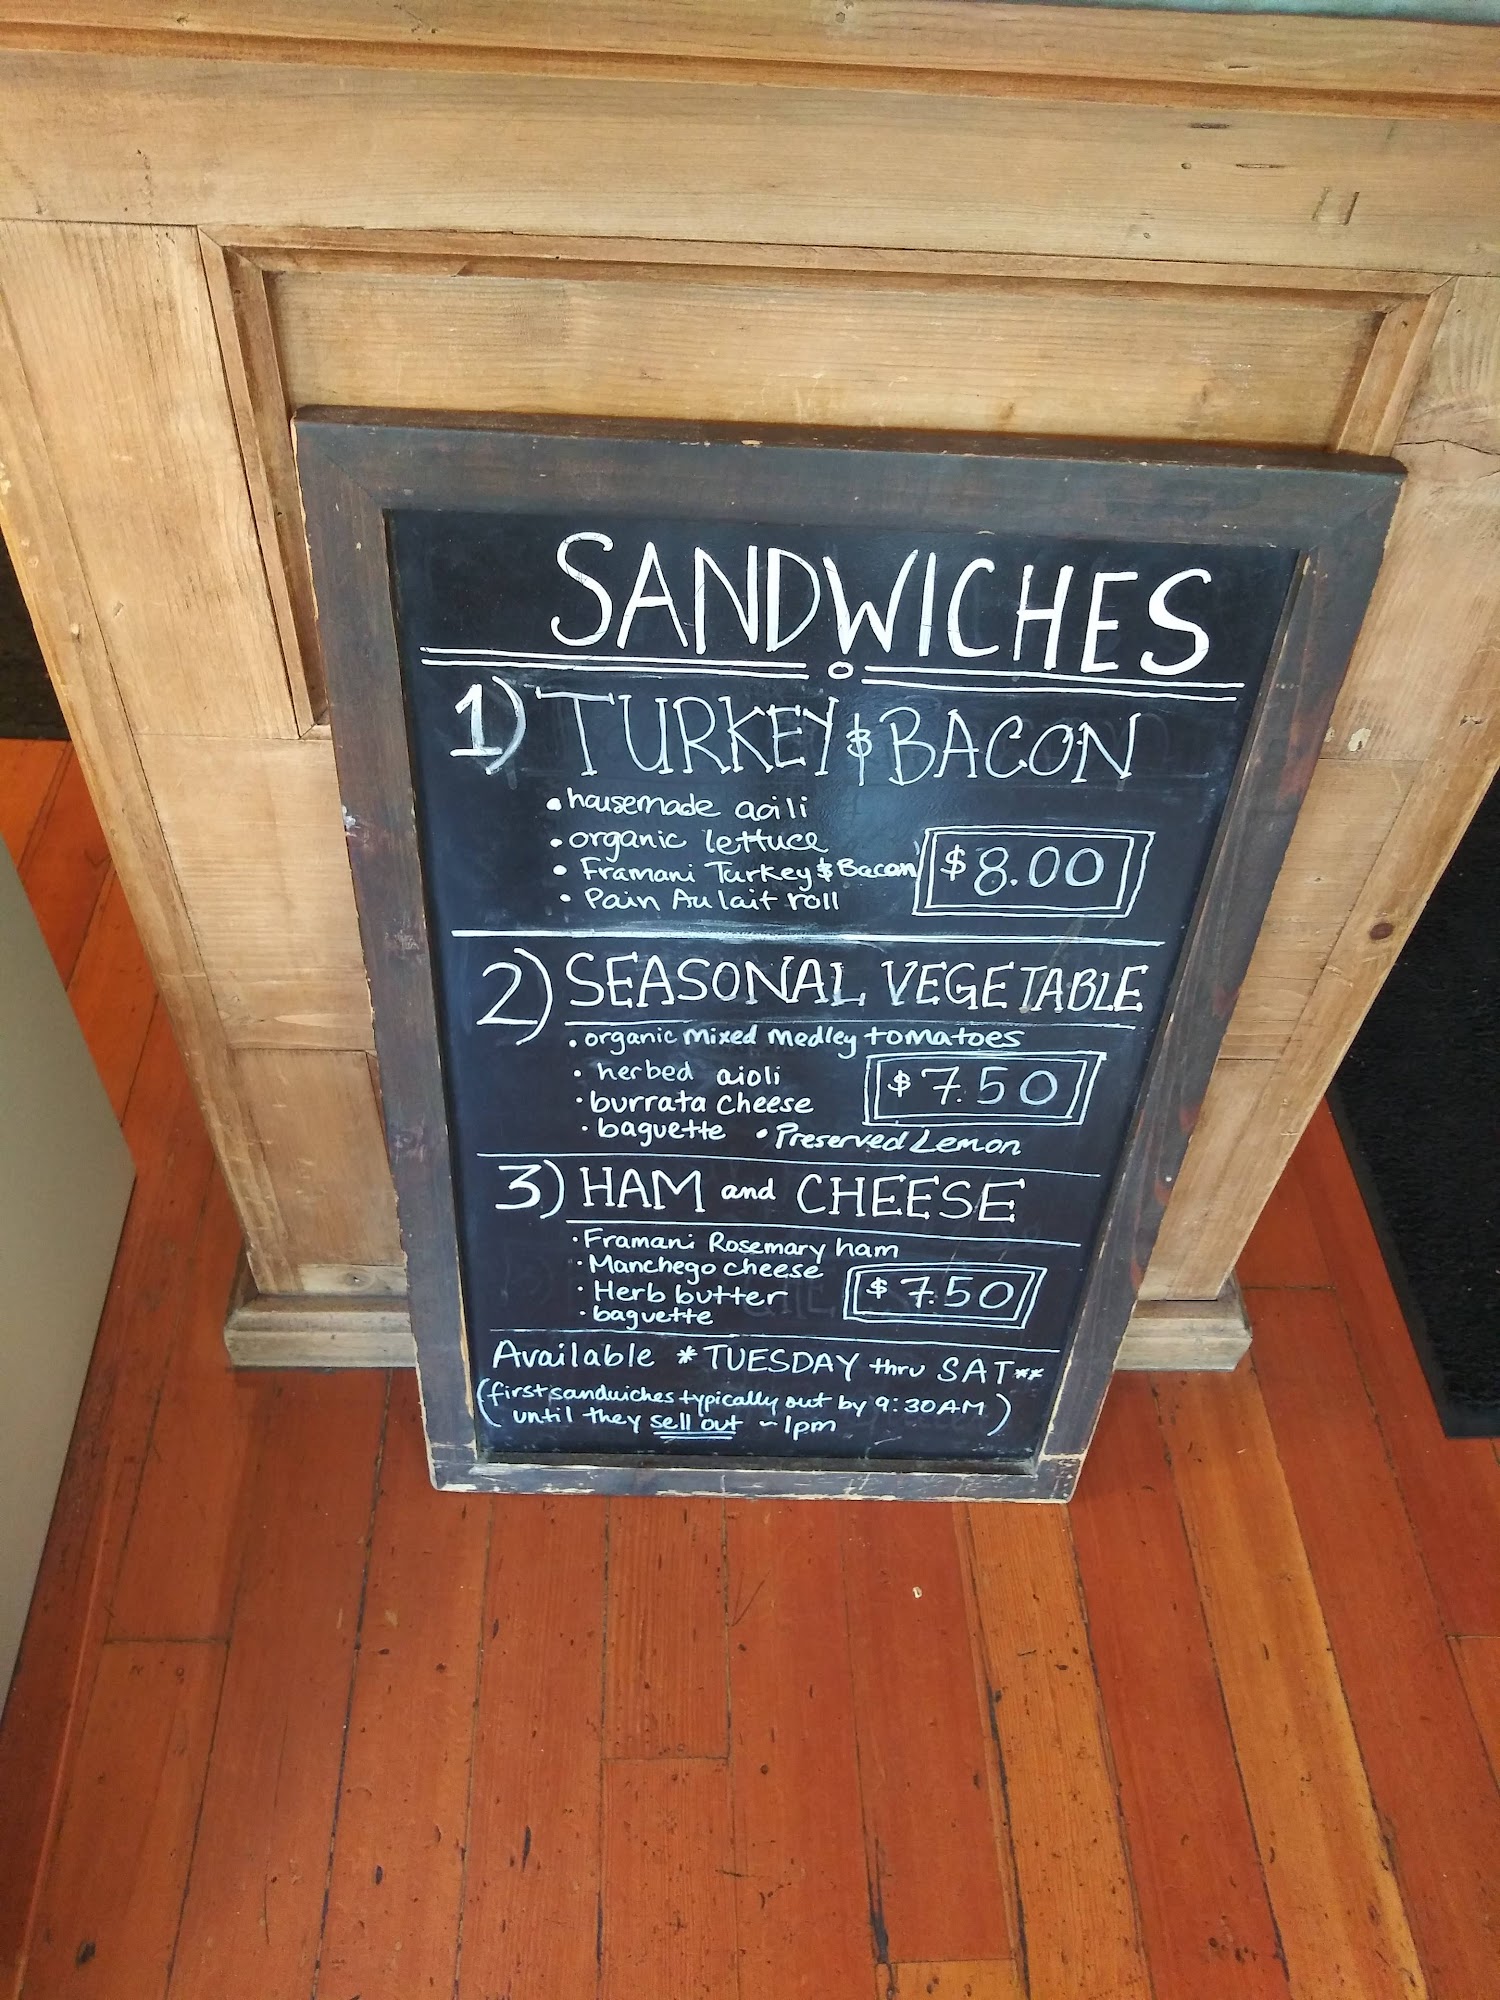 SANDWICHES
1) TURKEY & BACON
• housemade aoili
• organic lettuce
• Framani Turkey & Bacon
• Pain Au lait roll
$8.00
2) SEASONAL VEGETABLE
• organic mixed medley tomatoes
• herbed aioli
• burrata cheese
• baguette • Preserved Lemon
$7.50
3) HAM and CHEESE
• Framani Rosemary ham
• Manchego cheese
• Herb butter
• baguette
$7.50
Available *TUESDAY thru SAT**
(first sandwiches typically out by 9:30AM)
( until they sell out ~1pm )